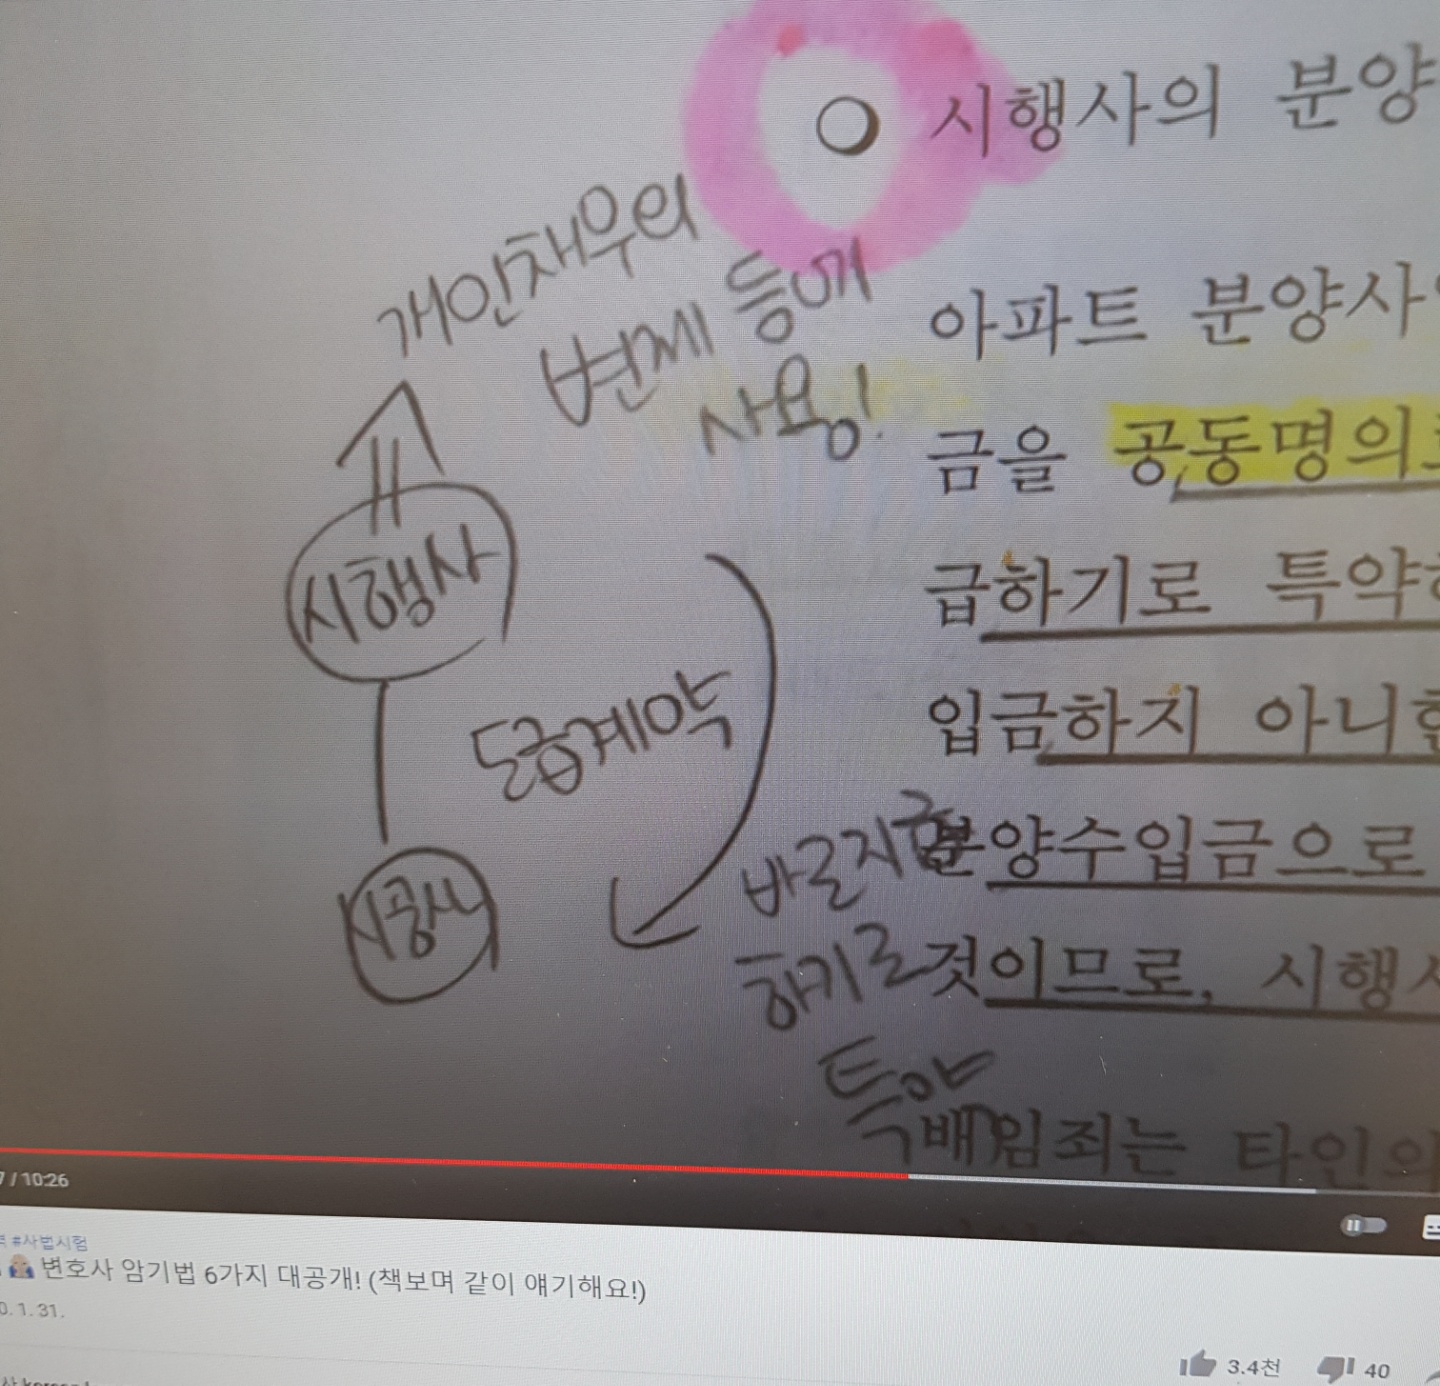 시행사의 분양
개인채무의
변제 등에
사용!
아파트 분양사
금을 공동명의로
급하기로 특약하
입금하지 아니한
분양수입금으로
것이므로, 시행사
배임죄는 타인의
시행사
도급계약
시공사
바로지급
하기로
특약
/ 10:26
#사법시험
변호사 암기법 6가지 대공개! (책보며 같이 얘기해요!)
0. 1. 31.
3.4천
40